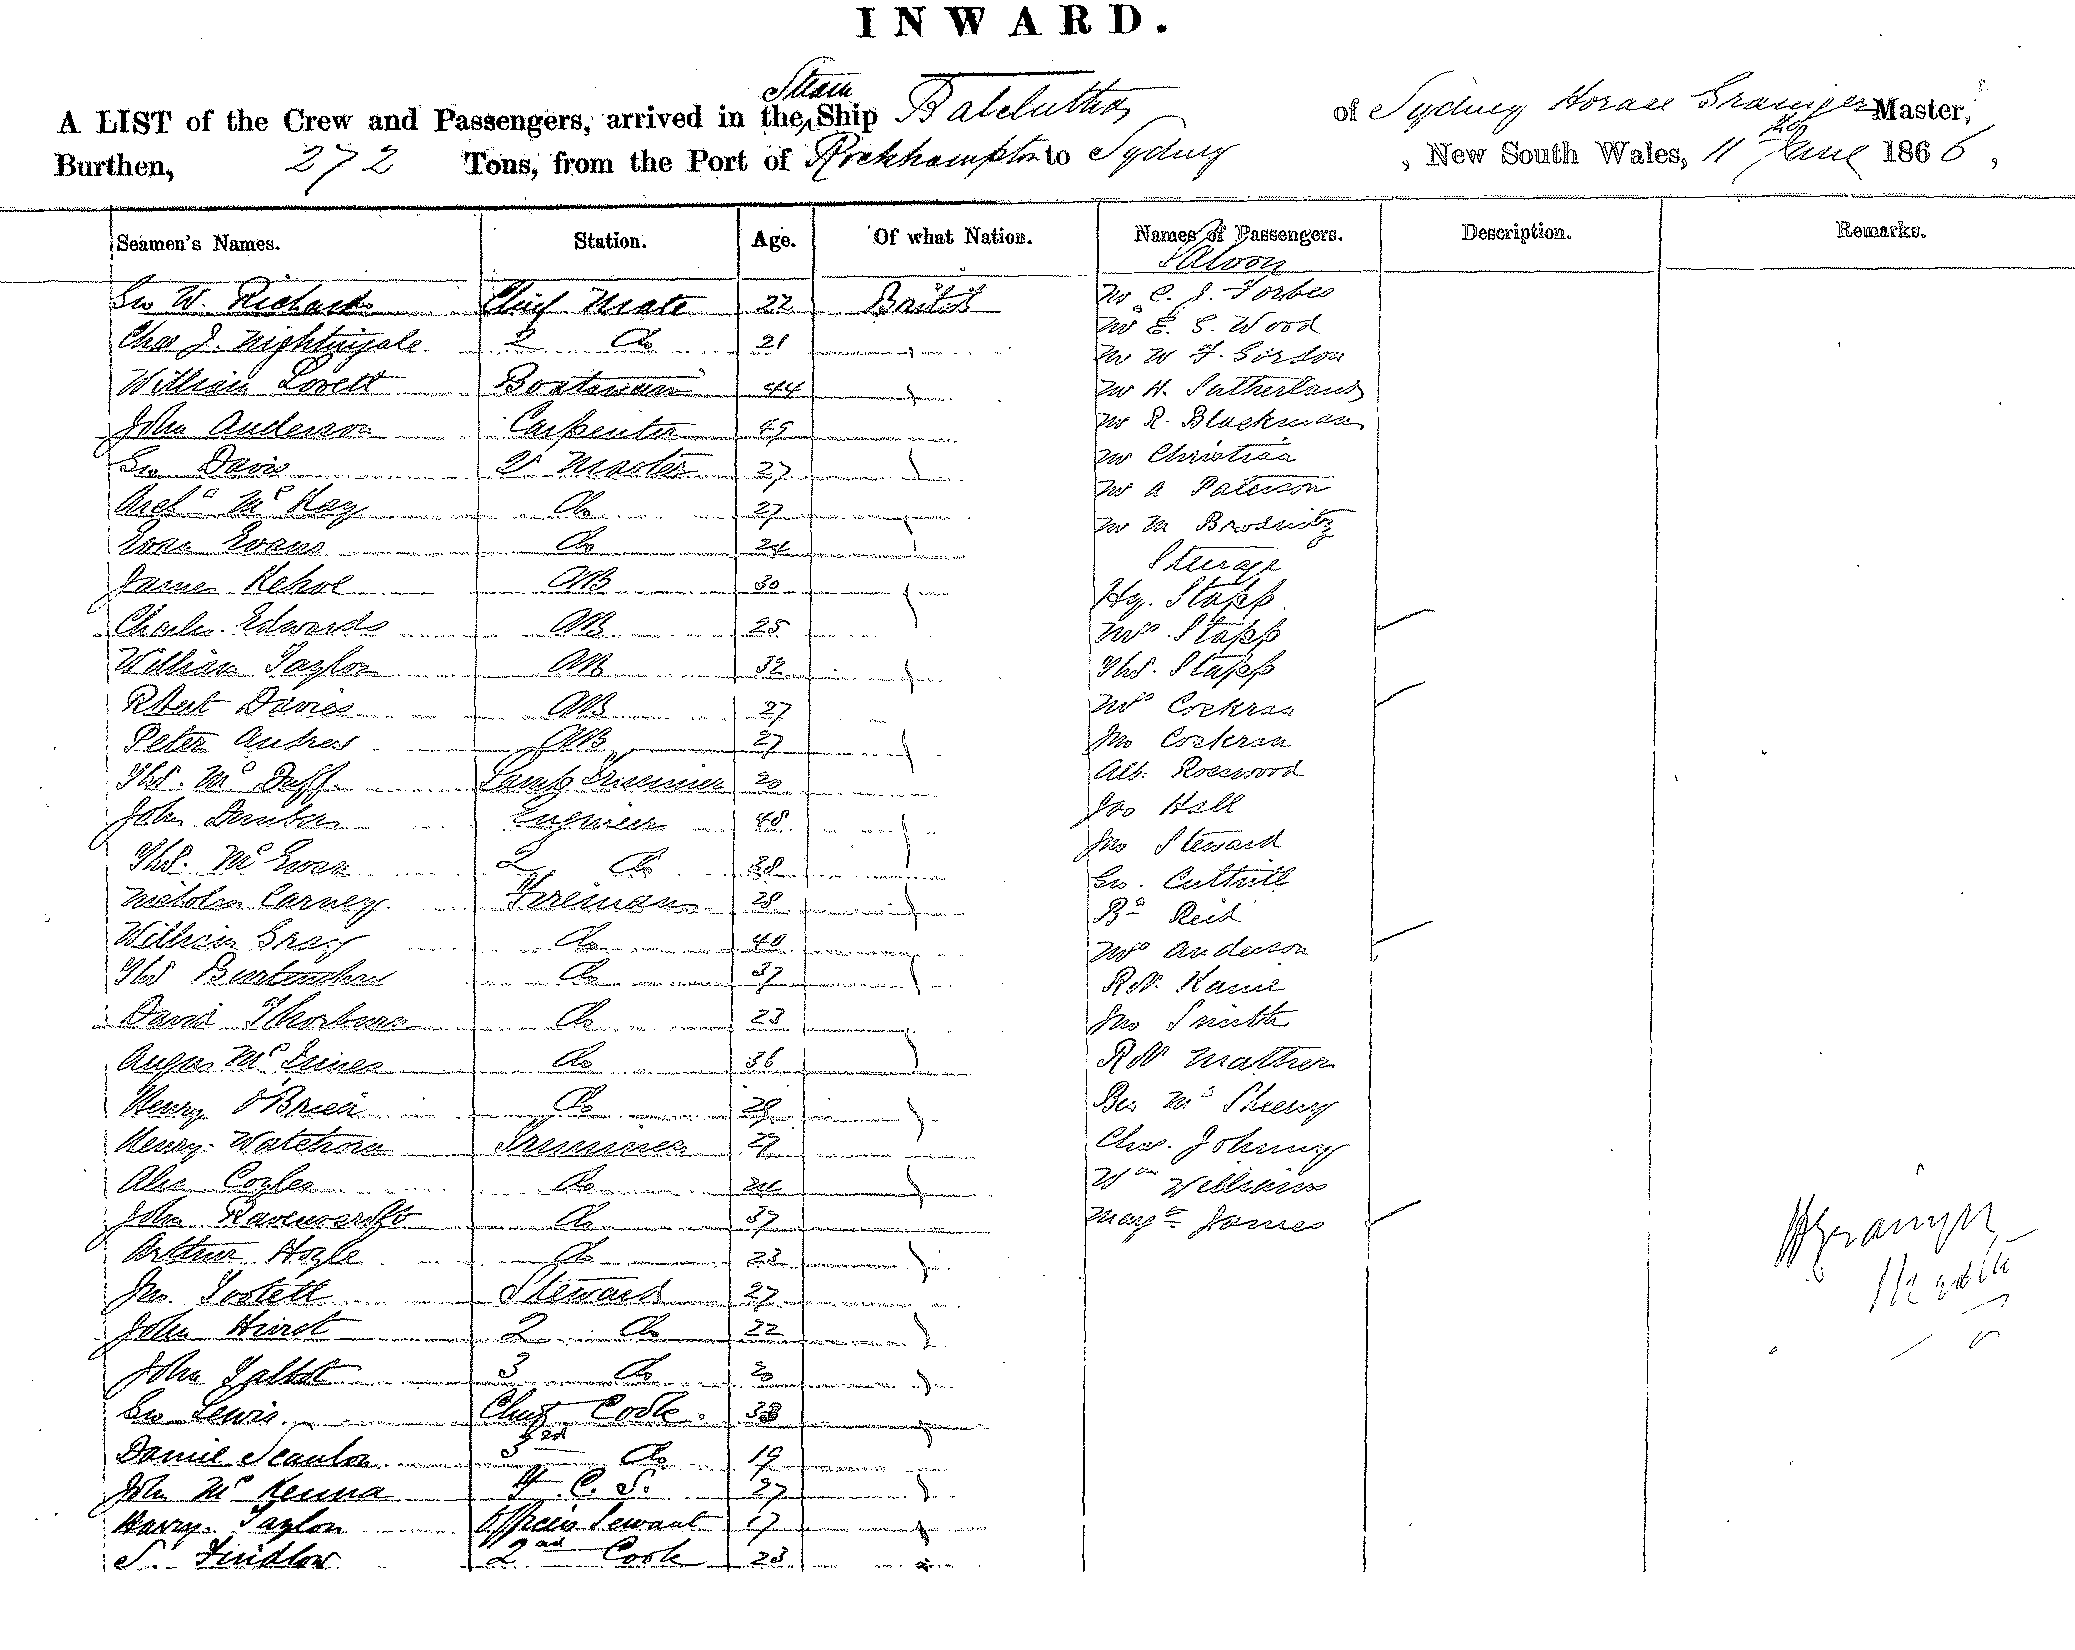 INWARD.
A LIST of the Crew and Passengers, arrived in the Steam Ship Balclutha of Sydney Horace Grainger Master,
Burthen, 272 Tons, from the Port of Rockhampton to Sydney, New South Wales, 11th June 1866,
Seamen's Names. Station. Age. Of what Nation. Names of Passengers. Description. Remarks.
Saloon
Geo W. Richards Chief Mate 22 British Mr C. J. Forbes
Chas J. Nightingale 2 Do 21 Mr E. S. Wood
Mr W F. Gordon
William Lovett Boatswain 44 Mr H. Sutherland
John Anderson Carpenter 49 Mr R. Blackman
Geo Davis Qr Master 27 Mr Christian
Mr A Paterson
Archd McKay Do 27 Mr M Brodnitz
Evan Evans Do 24 Steerage
James Kehoe AB 30 Hy. Stapp
Charles Edwards AB 25 Mrs Stapp
William Taylor AB 32 Thos. Stapp
Robert Davies AB 27 Mrs Cockran
Peter Andres AB 27 Jno Cockran
Thos. McDuff Lamp Trimmer 20 Alb. Rosewood
John Dunbar Engineer 48 Jas Hall
Jno Steward
Thos. McEwan 2 Do 28 Geo. Cuthill
Nicholas Carney Fireman 28 Rd Reid
William Gray Do 40 Mrs Anderson
Thos Do 37 RW. Kame
David Thorburn Do 23 Jno Smith
Angus McInnes Do 36 RW Mather
Henry O'Brien Do 29 Mc Sherry
Henry Watchorn Trimmer 27 Chas. Johnny
Alec Coyles Do 24 Wm Williams
John Ravenscroft Do 37 Margt James
Arthur Hoyle Do 23 HGrainger
Jno. Tostell Steward 27 Master
John Hurst 2 Do 22
John Talbot 3 Do 20
Geo Lewis Chief Cook 38
Daniel Scanlon 3rd Do 19
John McKenna F. C. S. 27
Harry Taylor Officers Servant 17
S. Findlow 2nd Cook 23